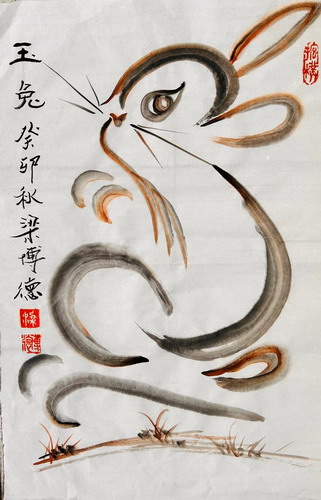 玉兔癸卯秋梁博德